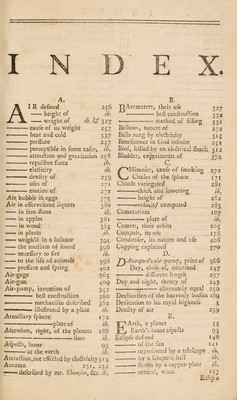 INDEX.
A.
AIR defined 256
—— height of ib.
—— weight of ib. & 327
—— cause of its weight 257
—— heat and cold 337
—— pressure 257
—— perceptible in some cases, ib.
—— attraction and gravitation 258
—— repulsive force ib.
—— elasticity ib.
—— density of 259
—— uses of 271
—— motion of 272
Air bubble in eggs 375
Air in effervescing liquors 380
—— in free-stone ib.
—— in apples 381
—— in wood 385
—— in plants ib.
—— weighed in a balance 394
—— the medium of sound 396
—— necessary to fire ib.
—— to the life of animals 398
—— pressure and spring 401
Air-gage 365
Air-gun 409
Air-pump, invention of 357
—— best construction 360
—— mechanism described 362
—— illustrated by a plate ib.
Armillary sphere 172
—— plate of ib.
Ascension, right, of the planets 186
—— stars ib.
Aspects, lunar 95
—— at the earth ib.
Attraction, not effected by electricity 315
Autumn 231, 232
—— described by mr. Thomson, &c. ib.
B.
Barometers, their use 327
—— best construction 332
—— method of filling 331
Bellows, nature of 272
Bells rung by electricity 315
Beneficence in God infinite 251
Bird, killed by an electrical shock 312
Bladder, experiments of 372
C.
Chimnies, cause of smoking 272
Circles of the sphere 171
Clouds variegated 281
—— thick and lowering ib.
—— height of 282
—— velocity computed 285
Cometarium 107
—— plate of ib.
Comets, their orbits 105
Compass, its use 178
Condenser, its nature and use 408
Cupping explained 370
D.
Decemper's air-pump, print of 366
Day, circle of, described 247
—— different length 237
Day and night, theory of 243
—— alternately equal 250
Declination of the heavenly bodies 189
Dedication to his royal highness 3
Density of air 259
E.
Earth, a planet 55
Earth's lunar aspects 93
Eclipse defined 148
—— of the sun 141
—— represented by a telescope ib.
—— by a scioptric ball ib.
—— shewn by a copper-plate ib.
—— central, what 155